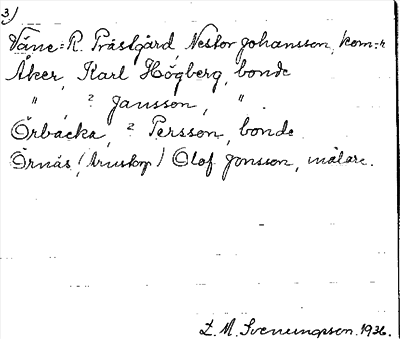 3)
Våne=R. Prästgård, Nestor Johansson, kom=r
Åker, Karl Högberg, bonde
" , ? Jansson, " .
Örbäcka, ? Persson, bonde
Örnäs, ( ) Olof Jonsson, målare.
L. M. Svenungsson. 1936.